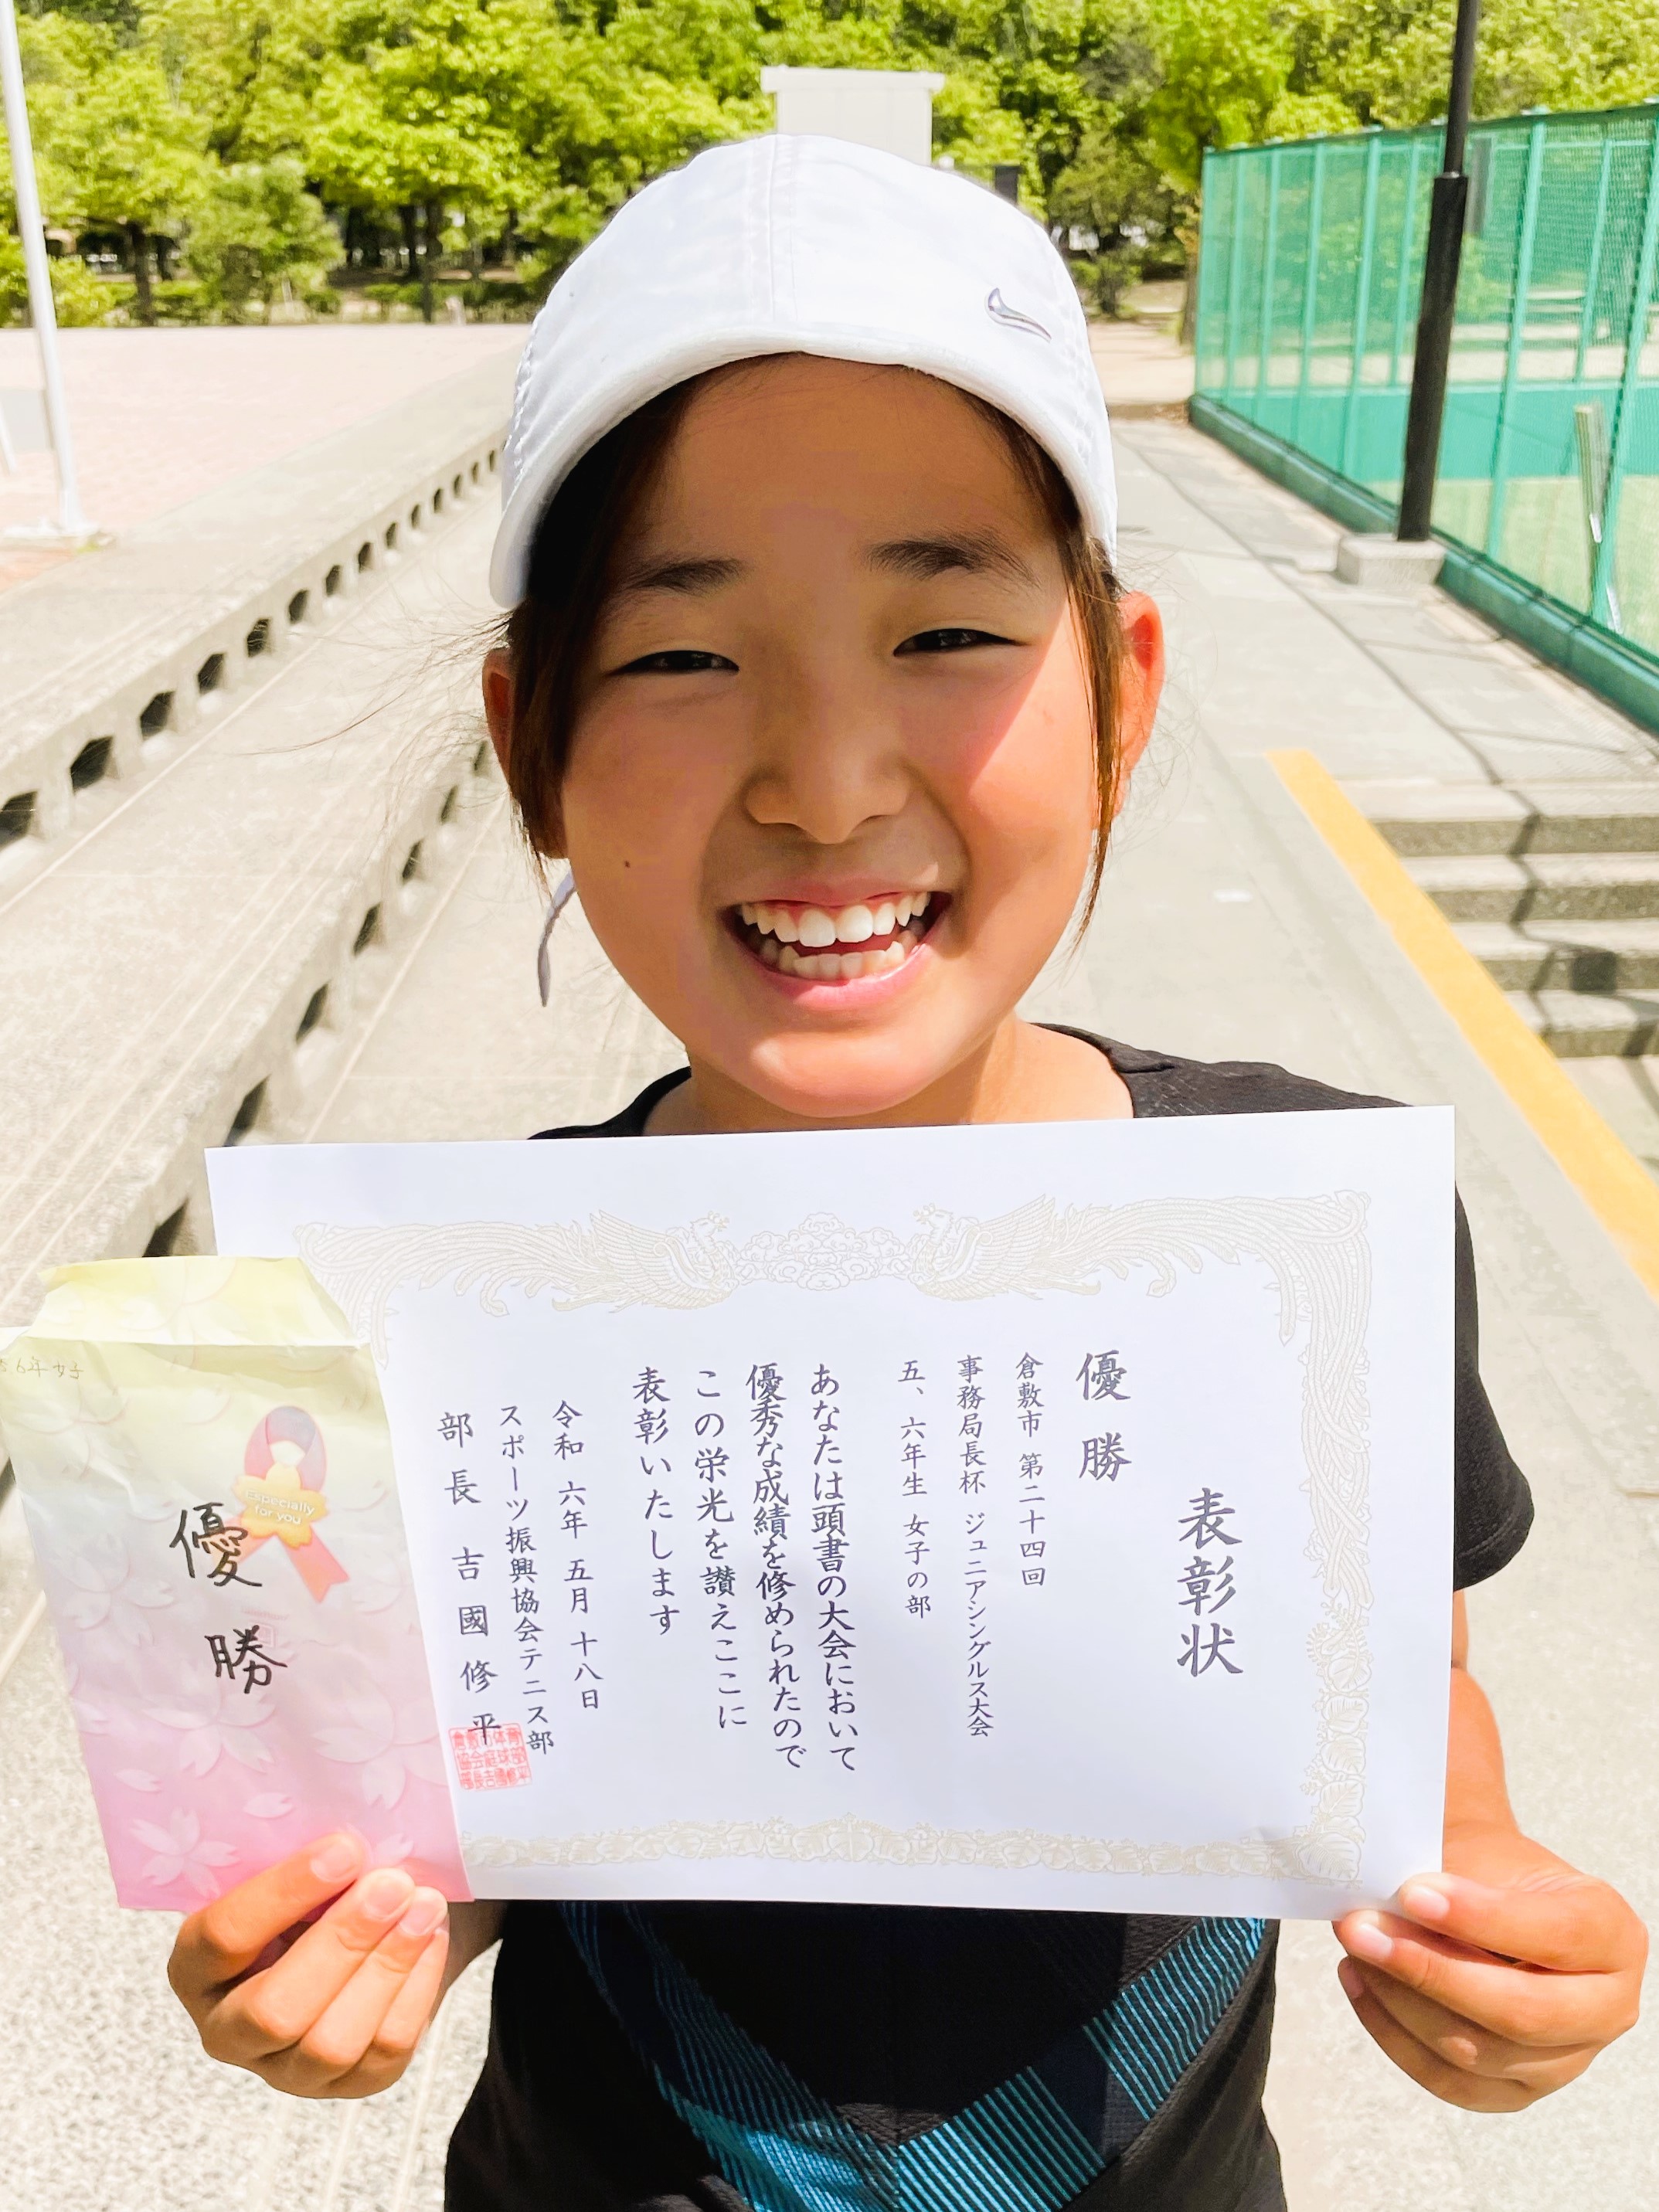 表彰状
優勝
倉敷市 第二十四回
事務局長杯 ジュニアシングルス大会
五、六年生 女子の部
あなたは頭書の大会において
優秀な成績を修められたので
この栄光を讃えここに
表彰いたします
令和 六年 五月 十八日
スポーツ振興協会テニス部
部長 吉國修平
6年女子
Especially
for you
優勝